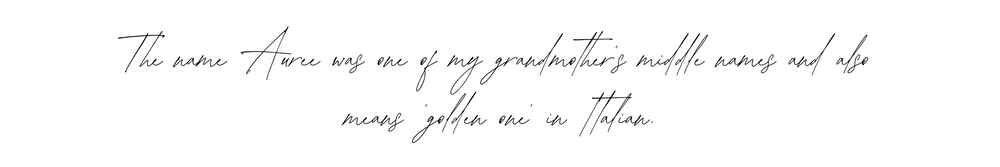 The name Auree was one of my grandmother's middle names and also
means 'golden one' in Italian.